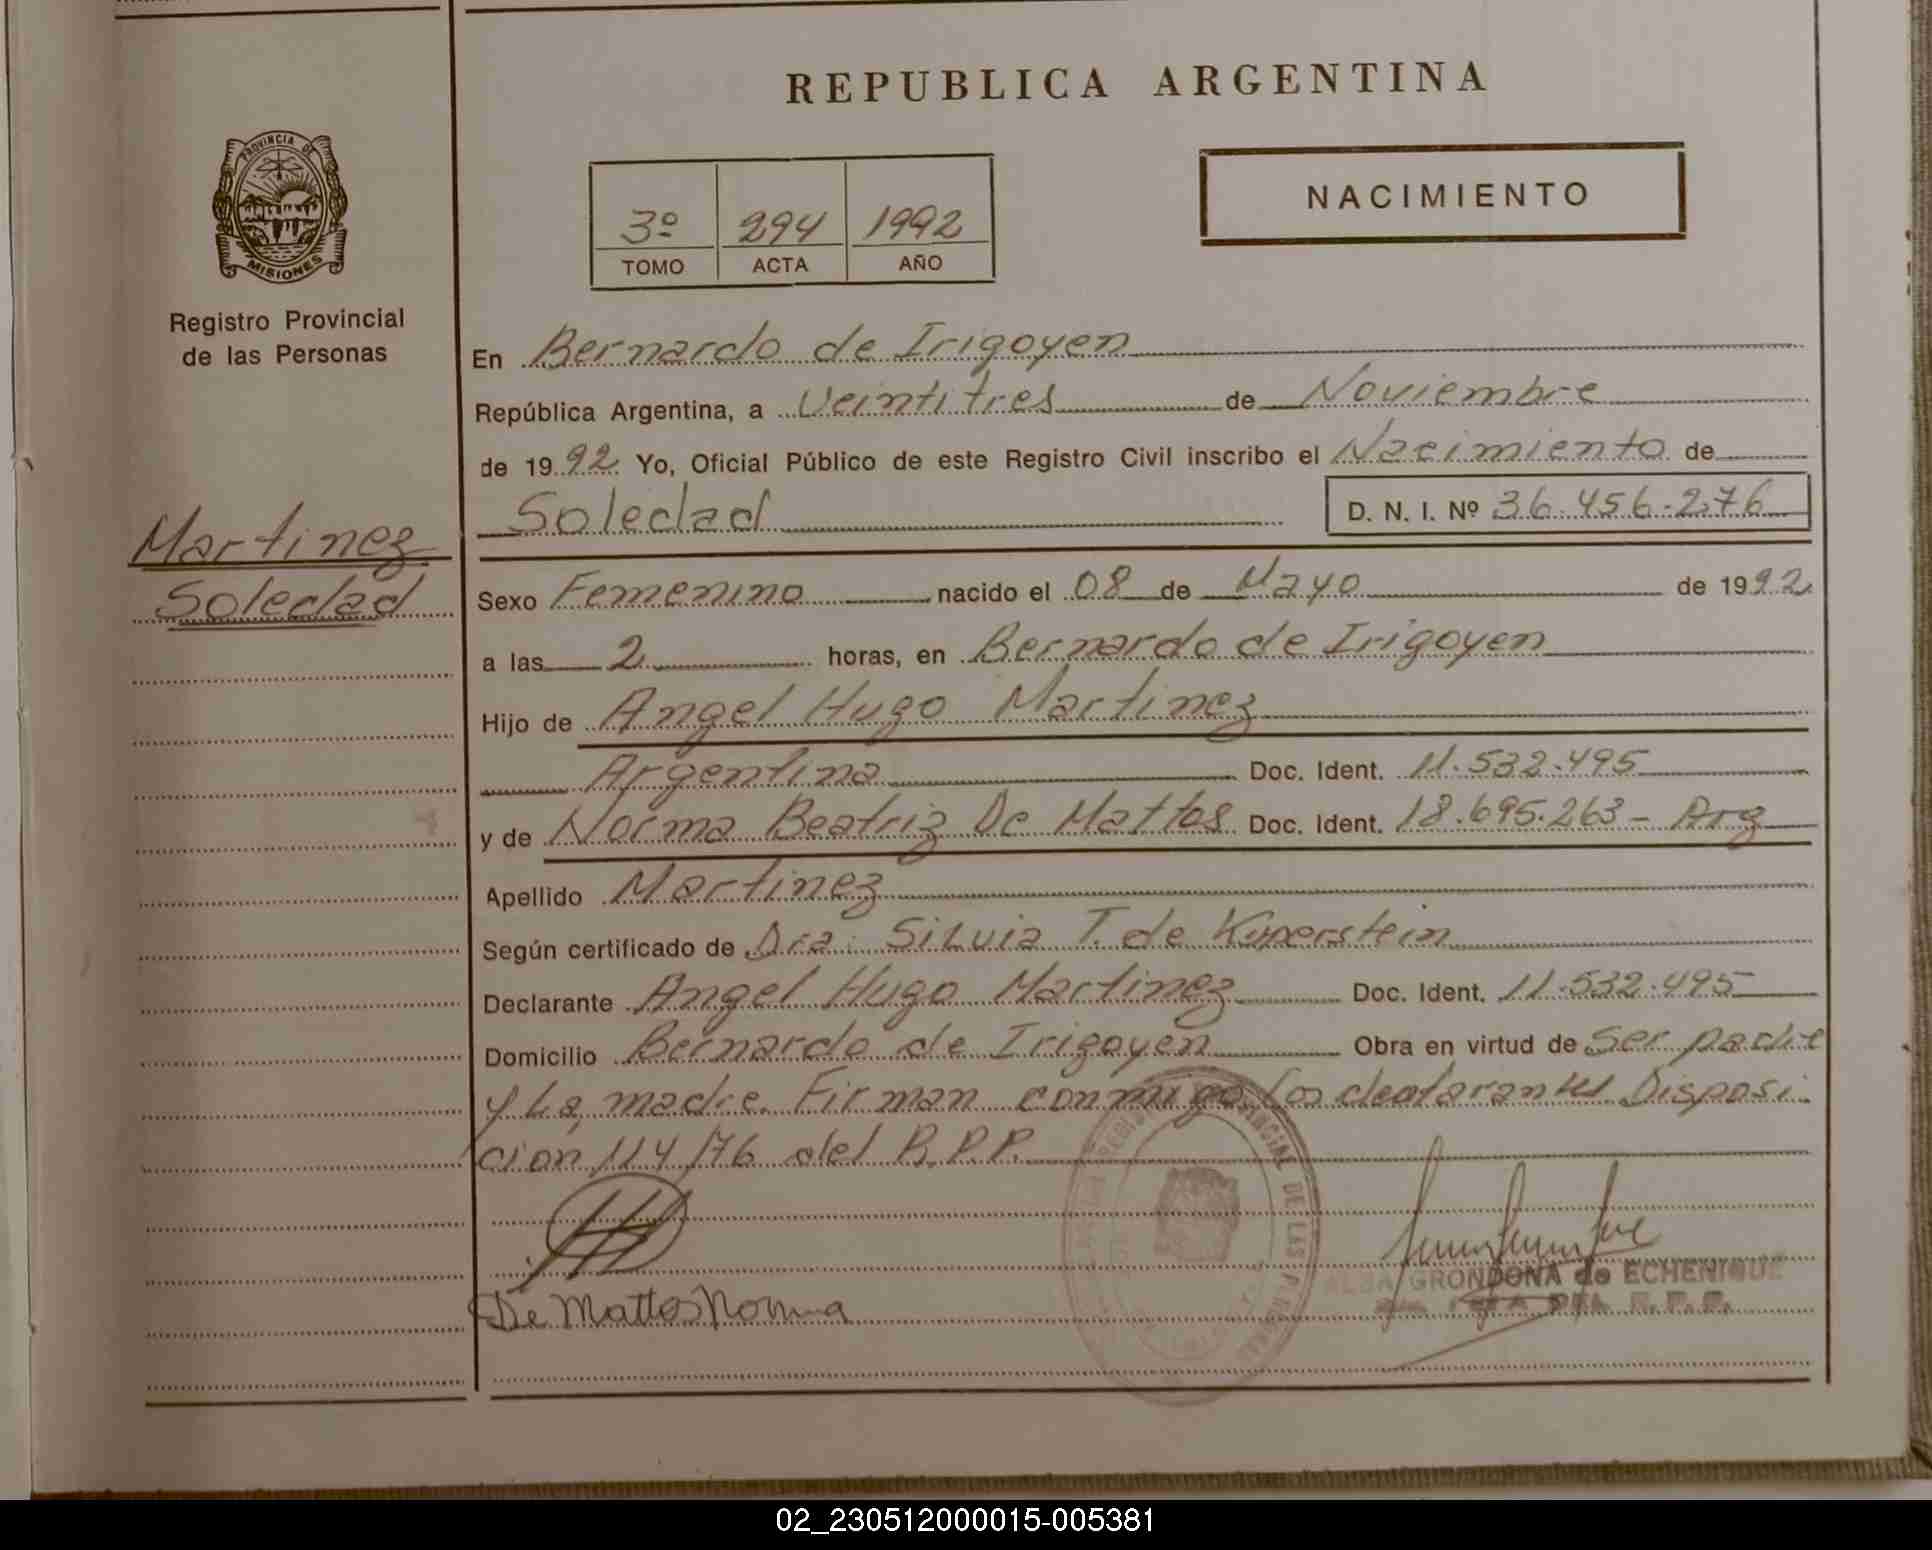 REPUBLICA ARGENTINA
PROVINCIA DE
MISIONES
Registro Provincial
de las Personas
3º 294 1992
TOMO ACTA AÑO
NACIMIENTO
En Bernardo de Irigoyen
República Argentina, a Veintitres de Noviembre
de 1992 Yo, Oficial Público de este Registro Civil inscribo el Nacimiento de
Soledad D. N. I. Nº 36.456.276
Martinez
Soledad
Sexo Femenino nacido el 08 de Mayo de 1992
a las 2 horas, en Bernardo de Irigoyen
Hijo de Angel Hugo Martinez
Argentina Doc. Ident. 11.532.495
y de Norma Beatriz De Mattos Doc. Ident. 18.695.263 - Arg
Apellido Martinez
Según certificado de Dra. Silvia T. de Kuperstein
Declarante Angel Hugo Martinez Doc. Ident. 11.532.495
Domicilio Bernardo de Irigoyen Obra en virtud de Ser padre
y La madre. Firman conmigo los declarantes Disposi
cion 114/76 del R.P.P.
DE LAS
De Mattos Norma
ALBA GRONDONA de ECHENIQUE
DEL R.P.P.
02_230512000015-005381